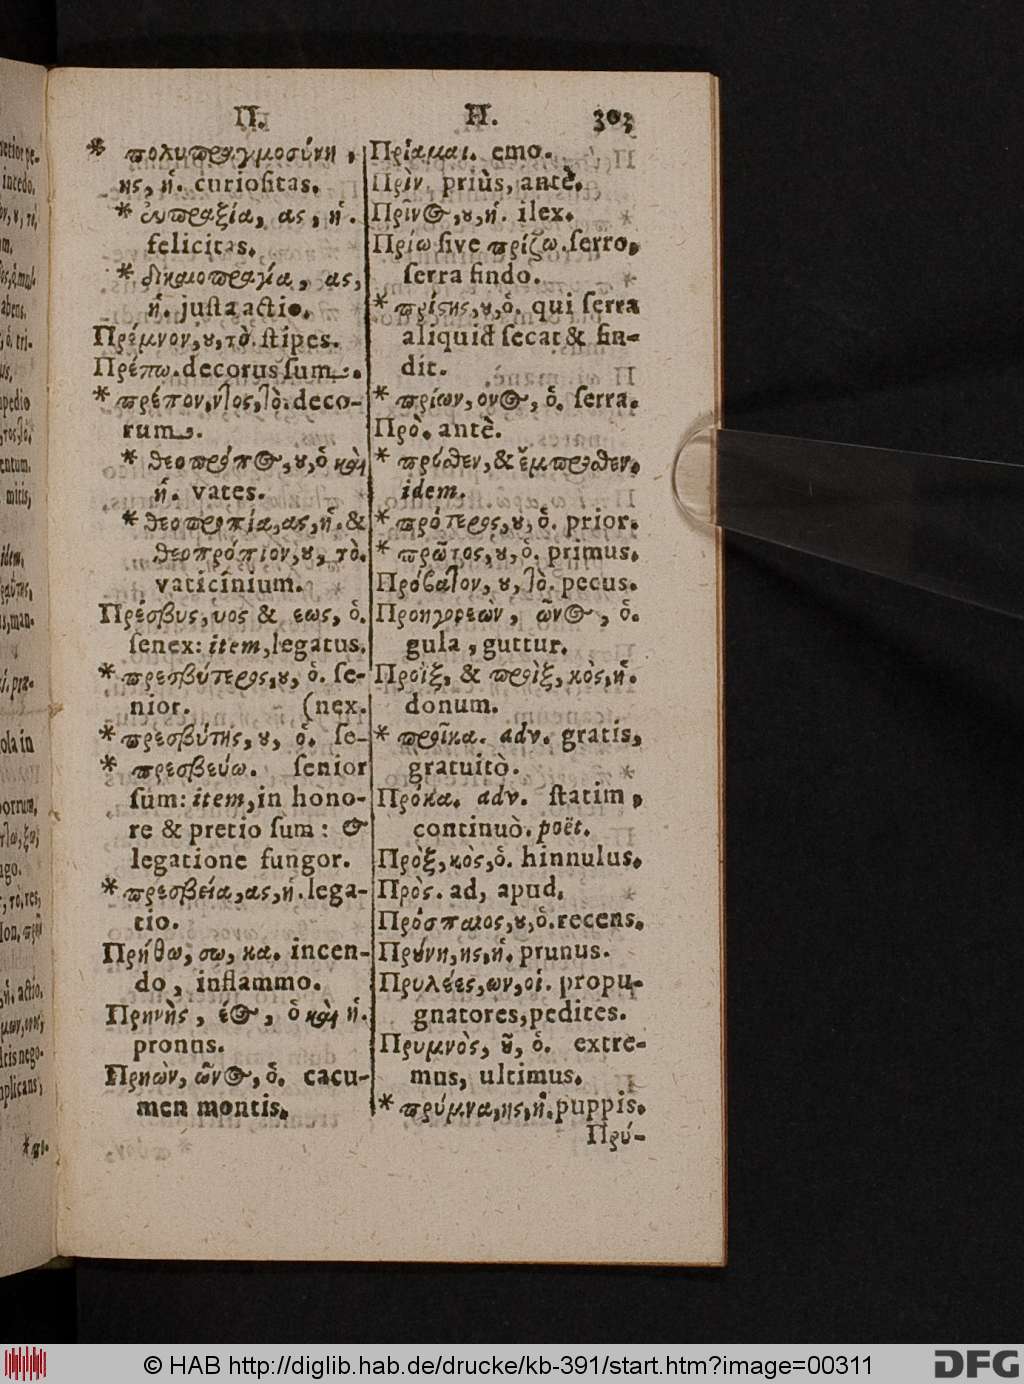 Π. Η. 303
* πολυπραγμοσύνη,
ης, ἡ. curioſitas.
* ἐυπραξία, ας, ἡ.
felicitas.
* δικαιοπραγία, ας,
ἡ. juſta actio.
Πρέμνον, ου, τὸ. ſtipes.
Πρέπω. decorus ſum.
* πρέπον, ντος, τὸ. deco-
rum.
* θεοπρόπος, ου, ὁ καὶ
ἡ. vates.
* θεοπροπία, ας, ἡ. &
θεοπρόπιον, ου, τὸ.
vaticinium.
Πρέσβυς, υος & εως, ὁ.
ſenex: item, legatus.
* πρεσβύτερος, ου, ὁ. ſe-
nior. (nex.
* πρεσβύτης, ου, ὁ. ſe-
* πρεσβεύω. ſenior
ſum: item, in hono-
re & pretio ſum: &
legatione fungor.
* πρεσβεία, ας, ἡ. lega-
tio.
Πρήθω, σω, κα. incen-
do, inflammo.
Πρηνὴς, έος, ὁ καὶ ἡ.
pronus.
Πρηὼν, ῶνος, ὁ. cacu-
men montis.
Πρίαμαι. emo.
Πρὶν. priùs, antè.
Πρῖνος, ου, ἡ. ilex.
Πρίω ſive πρίζω. ſerro,
ſerra findo.
* πρίστης, ου, ὁ. qui ſerra
aliquid ſecat & fin-
dit.
* πρίων, ονος, ὁ. ſerra.
Πρὸ. antè.
* πρόσθεν, & ἔμπροσθεν.
idem.
* πρότερος, ου, ὁ. prior.
* πρῶτος, ου, ὁ. primus.
Πρόβατον, ου, τὸ. pecus.
Προηγορεὼν, ῶνος, ὁ.
gula, guttur.
Προὶξ, & προὶξ, κὸς, ἡ.
donum.
* προῖκα. adv. gratis,
gratuitò.
Πρόκα. adv. ſtatim,
continuò. poët.
Πρὸξ, κὸς, ὁ. hinnulus.
Πρὸς. ad, apud.
Πρόσπαιος, ου, ὁ. recens.
Προύνη, ης, ἡ. prunus.
Πρυλέες, ων, οἱ. propu-
gnatores, pedites.
Πρυμνὸς, οῦ, ὁ. extre-
mus, ultimus.
* πρύμνα, ης, ἡ. puppis.
Πρύ-
© HAB http://diglib.hab.de/drucke/kb-391/start.htm?image=00311
DFG